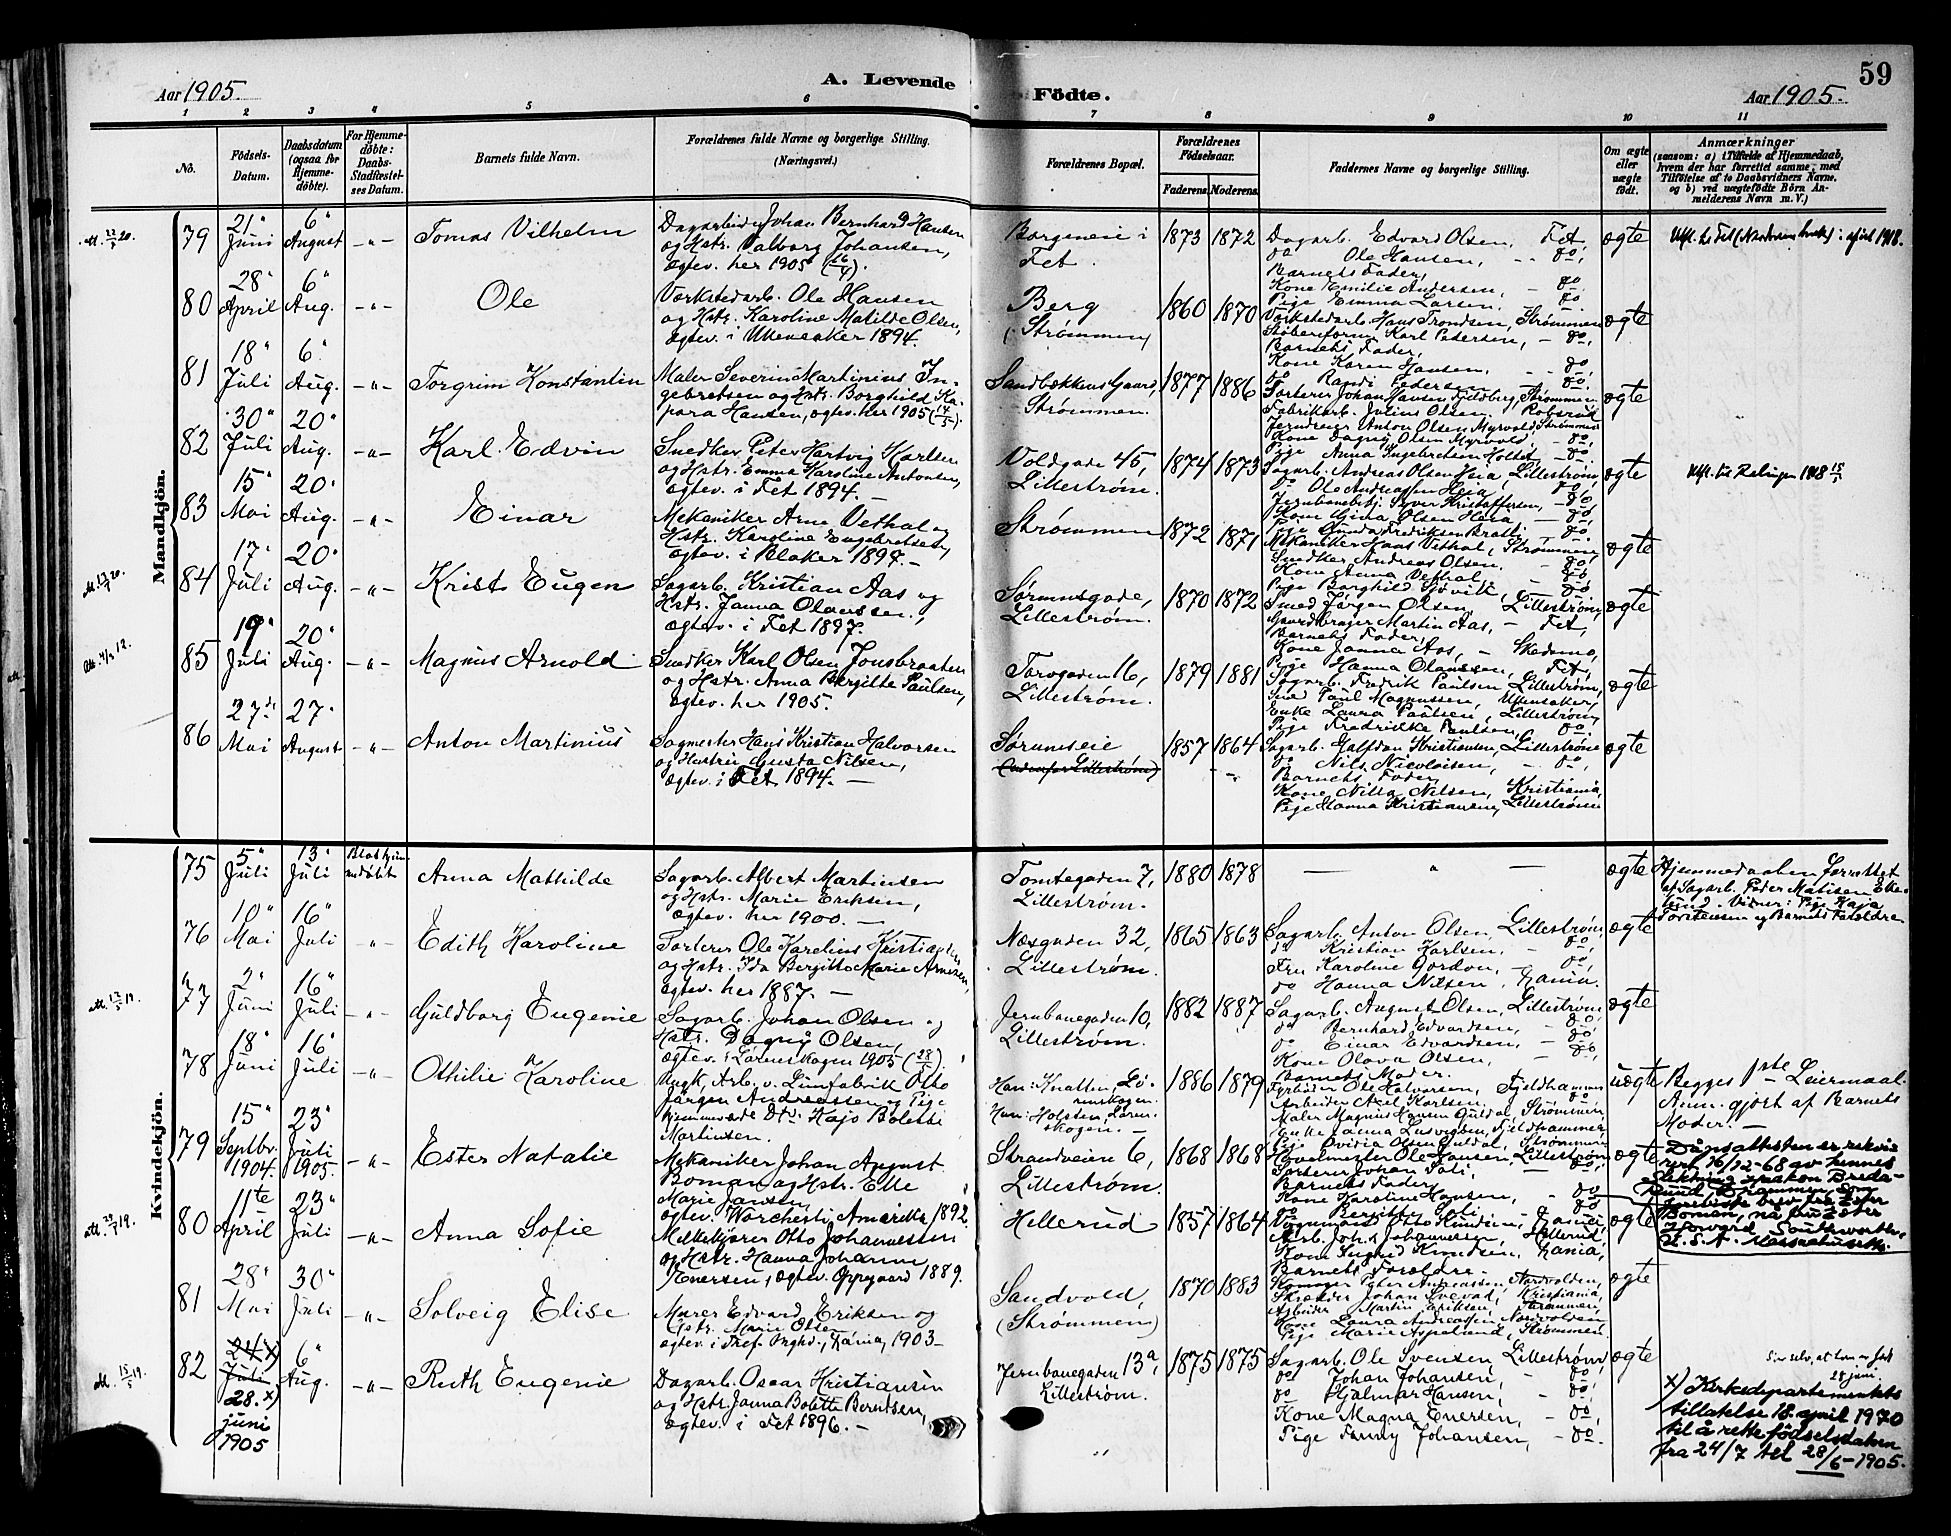 Aar 1905.
A. Levende Födte.
59
Aar 1905.
1 2 3 4 5 6 7 8 9 10 11
No.
Födsels-
Datum.
Daabsdatum
(ogsaa for
Hjemme-
döbte).
For Hjemme-
döbte:
Daabs-
Stadfæstel-
ses Datum.
Barnets fulde Navn.
Forældrenes fulde Navne og borgerlige Stilling.
(Næringsvei.)
Forældrenes Bopæl.
Forældrenes
Födselsaar.
Faderens. Moderens.
Faddernes Navne og borgerlige Stilling.
Om ægte
eller
uægte
födt.
Anmærkninger
(saasom: a) i Tilfælde af Hjemmedaab,
hvem der har forrettet samme, med
Tilföielse af to Daabsvidners Navne,
og b) ved uægtefödte Börn An-
melderens Navn m. V.)
Mandkjön.
79
21' Juni
6' August
-"-
Tomas Vilhelm
Dagarbeider Johan Bernhard Hansen
og Hstr. Valborg Johansen,
ægtev. her 1905
Borgeneie i
Fet.
1873 1872
Dagarb. Edvard Olsen, Fet,
do Ole Hansen, do,
Barnets Fader,
Kone Emilie Andersen, - do.
Pige Emma Larsen, - do
ægte
80
28' April
6' Aug.
-"-
Ole
Værkstedarb. Ole Hansen
og Hstr. Karoline Matilde Olsen,
ægtev. i Ullensaker 1894.
Berg
(Strømmen)
1860 1870
Værkstedarb. Hans Trondsen, Strømmen
Karl Petersen, - do,
Barnets Fader,
Kone Karen Hansen, - do,
do Randi Petersen - do.
ægte
81
18' Juli
6' Aug.
-"-
Torgrim Konstantin
Maler Severin Martinius In-
gebretsen og Hstr. Borghild Ka-
para Hansen, ægtev. her 1905 (14/5).
Sandbækkens Gaard,
Strømmen.
1877 1886
Torterer Johan Hansen Fjeldberg, Strømmen
Fabrikarb. Julius Olsen, Robsrud
Jerndreier Anton Olsen Myrvold, Strømmen
Kone Dagny Olsen Myrvold, - do,
Pige Anna Ingebretsen Holter - do
ægte
82
30' Juli
20' Aug.
-"-
Karl Edvin
Snedker Peter Hartvig Karlsen
og Hstr. Emma Karoline Antonsen,
ægtev. i Fet 1894. -
Voldgade 45,
Lillestrøm.
1874 1873
Sagarb. Andreas Olsen Heia, Lillestrøm,
do Ole Andreassen Heia, do,
Jernbanebetj. Syver Kristoffersen, - do,
Kone Gina Olsen Heia - do,
Pige Gunda Fredriksen Braate, - do.
ægte
83
15' Mai
20' Aug.
-"-
Einar
Mekaniker Arne Vethal og
Hstr. Karoline Engebretsen,
ægtev. i Blaker 1894. -
Strømmen
1872 1871
Mekaniker Hans Vethal, Strømmen,
Snedker Andreas Olsen, do
Kone Anna Vethal, do
Pige Borghild Sjøvik, - do,
ægte
84
17' Juli
20' Aug.
-"-
Krist. Eugen
Sagarb. Kristian Aas og
Hstr. Janna Olaussen,
ægtev. i Fet 1897.
Sørumsgade,
Lillestrøm.
1870 1872
Smed Jørgen Olsen, Lillestrøm,
Gaardbruger Martin Aas, - Fet,
Barnets Fader,
Kone Janna Aas, - Skedsmo,
Pige Hanna Olaussen, Fet,
ægte
85
19' Juli
20' Aug.
-"-
Magnus Arnold
Snedker Karl Olsen Jonsbraaten
og Hstr. Anna Bergitte Paulsen,
ægtev. her 1905.
Torvgaden 16,
Lillestrøm.
1879 1881
Sagarb. Fredrik Paulsen, Lillestrøm,
Smed Paul Magnussen, Ullensaker,
Enke Laura Paulsen, Lillestrøm,
Pige Fredrikke Paulsen, do.
ægte
86
27de Mai
27' August
-"-
Anton Martinius
Sagmester Hans Kristian Halvorsen
og Hustru Gusta Nilsen,
ægtev. i Fet 1894. -
Sørumseie
(udenfor Lillestrøm)
1857 1864
Sagarb. Halfdan Kristiansen, Lillestrøm
do Nils Nicolaisen, - do,
Barnets Fader,
Kone Nilla Nilsen, Kristiania,
Pige Hanna Kristiansen, Lillestrøm
ægte
Kvindekjön.
75
5' Juli
13' Juli
Anna Mathilde
Sagarb. Albert Martinsen
og Hstr. Marie Eriksen,
ægtev. her 1900. -
Tomtegaden 7,
Lillestrøm.
1880 1878
— " —
ægte
Hjemmedaaben forrettet
af Sagarb. Peder Matisen Eke-
lund. Vidner: Pige Kaja
Torstensen og Barnets Forældre
76
10' Mai
16' Juli
-"-
Edith Karoline
Torterer Ole Karelius Kristiansen
og Hstr. Ida Bergitte Marie Arnesen,
ægtev. her 1887. -
Næsgaden 32,
Lillestrøm.
1865 1863
Sagarb. Anton Olsen, Lillestrøm,
do Kristian Karlsen, - do,
Fru Karoline Gordon, - do,
do Hanna Nilsen,
ægte
77
2' Juni
16' Juli
-"-
Guldborg Eugenie
Sagarb. Johan Olsen og
Hstr. Dagny Olsen,
ægtev. i Lørenskogen 1905 (28/1).
Jernbanegaden 10,
Lillestrøm.
1882 1887
Sagarb. August Olsen, Lillestrøm,
do Bernhard Edvardsen, - do,
do Einar Edvardsen, - do,
Kone Olava Olsen, do,
Barnets Moder.
ægte
78
18' Juni
16' Juli
-"-
Othilie Karoline
Ungk. Arb. v. Limfabrik Otto
Jørgen Andreassen og Pige
hjemmevær. Dtr. Kaja Bolette
Martinsen.
Han: Knatten, Lø-
renskogen.
Hun: Holsten, Løren-
skogen. -
1886 1879
Fyrbøder Ole Halvorsen, Fjeldhammer
Arbeider Axel Karlsen, do
Maler Magnus Hansen Guldal, Strømmen,
Enke Janna Ludvigsen, Fjeldhammer
Pige Ovidia Olsen Guldal, Strømmen
uægte
Begges 1ste Leiermaal.
Anm. gjort af Barnets
Moder. -
79
15' Septbr. 1904.
23' Juli 1905.
-"-
Ester Natalie
Mekaniker Johan August
Boman og Hstr. Elle
Marie Jansen,
ægtev. Worchester Amerika 1892.
Strandveien 6,
Lillestrøm.
1868 1868
Høvelmester Ole Hansen, Lillestrøm
Torterer Johan Soli, - do,
Barnets Fader,
Kone Karoline Hansen, - do
do Bergitte Soli, - do
ægte
Dåpsattesten er rekvi-
rert 16/12-68 av hennes
slektning
80
11te April
23' Juli
-"-
Anna Sofie
Melkekjører Otto Johannessen
og Hstr. Hanna Johanne
Enersen, ægtev. Oppegaard 1889.
Hellerud
1857 1864
Vognmand Otto Knudsen,
Arb. Johs Johannessen, Hellerud,
Kone Sigrid Knudsen,
Barnets Forældre.
ægte
Howard, Southworth,
U.S.A. Massachusetts.
81
28' Mai
30' Juli
-"-
Solveig Elise
Murer Edvard Eriksen og
Hstr. Marie Olsen
ægtev. i Tref. Mghd., Kania, 1903-
Sandvold,
(Strømmen)
1870 1883
Peter Andreassen, Nordvolden,
Skrædder Johan Svevad, Kristiania,
Arbeider Martin Eriksen, Strømmen,
Kone Laura Andreassen, Nordvolden,
Pige Marie Asplund, Strømmen.
ægte
82
24' x) Juli
28. x) juni 1905
6' Aug.
-"-
Ruth Eugenie
Dagarb. Oscar Kristiansen
og Hstr. Janna Bolette Berntsen,
ægtev. i Fet 1896. -
Jernbanegaden 13a,
Lillestrøm.
1875 1875
Sagarb. Ole Svensen, Lillestrøm,
do Johan Johansen, - do,
do Hjalmar Hansen, - do,
Kone Magna Enersen, - do,
Pige Fanny Johansen, - do.
ægte
Sier selv, at hun er født
28 juni
x) Kirkedepartementets
tillatelse 18. april 1970
til å rette fødselsdatoen
fra 24/7 til 28/6-1905.